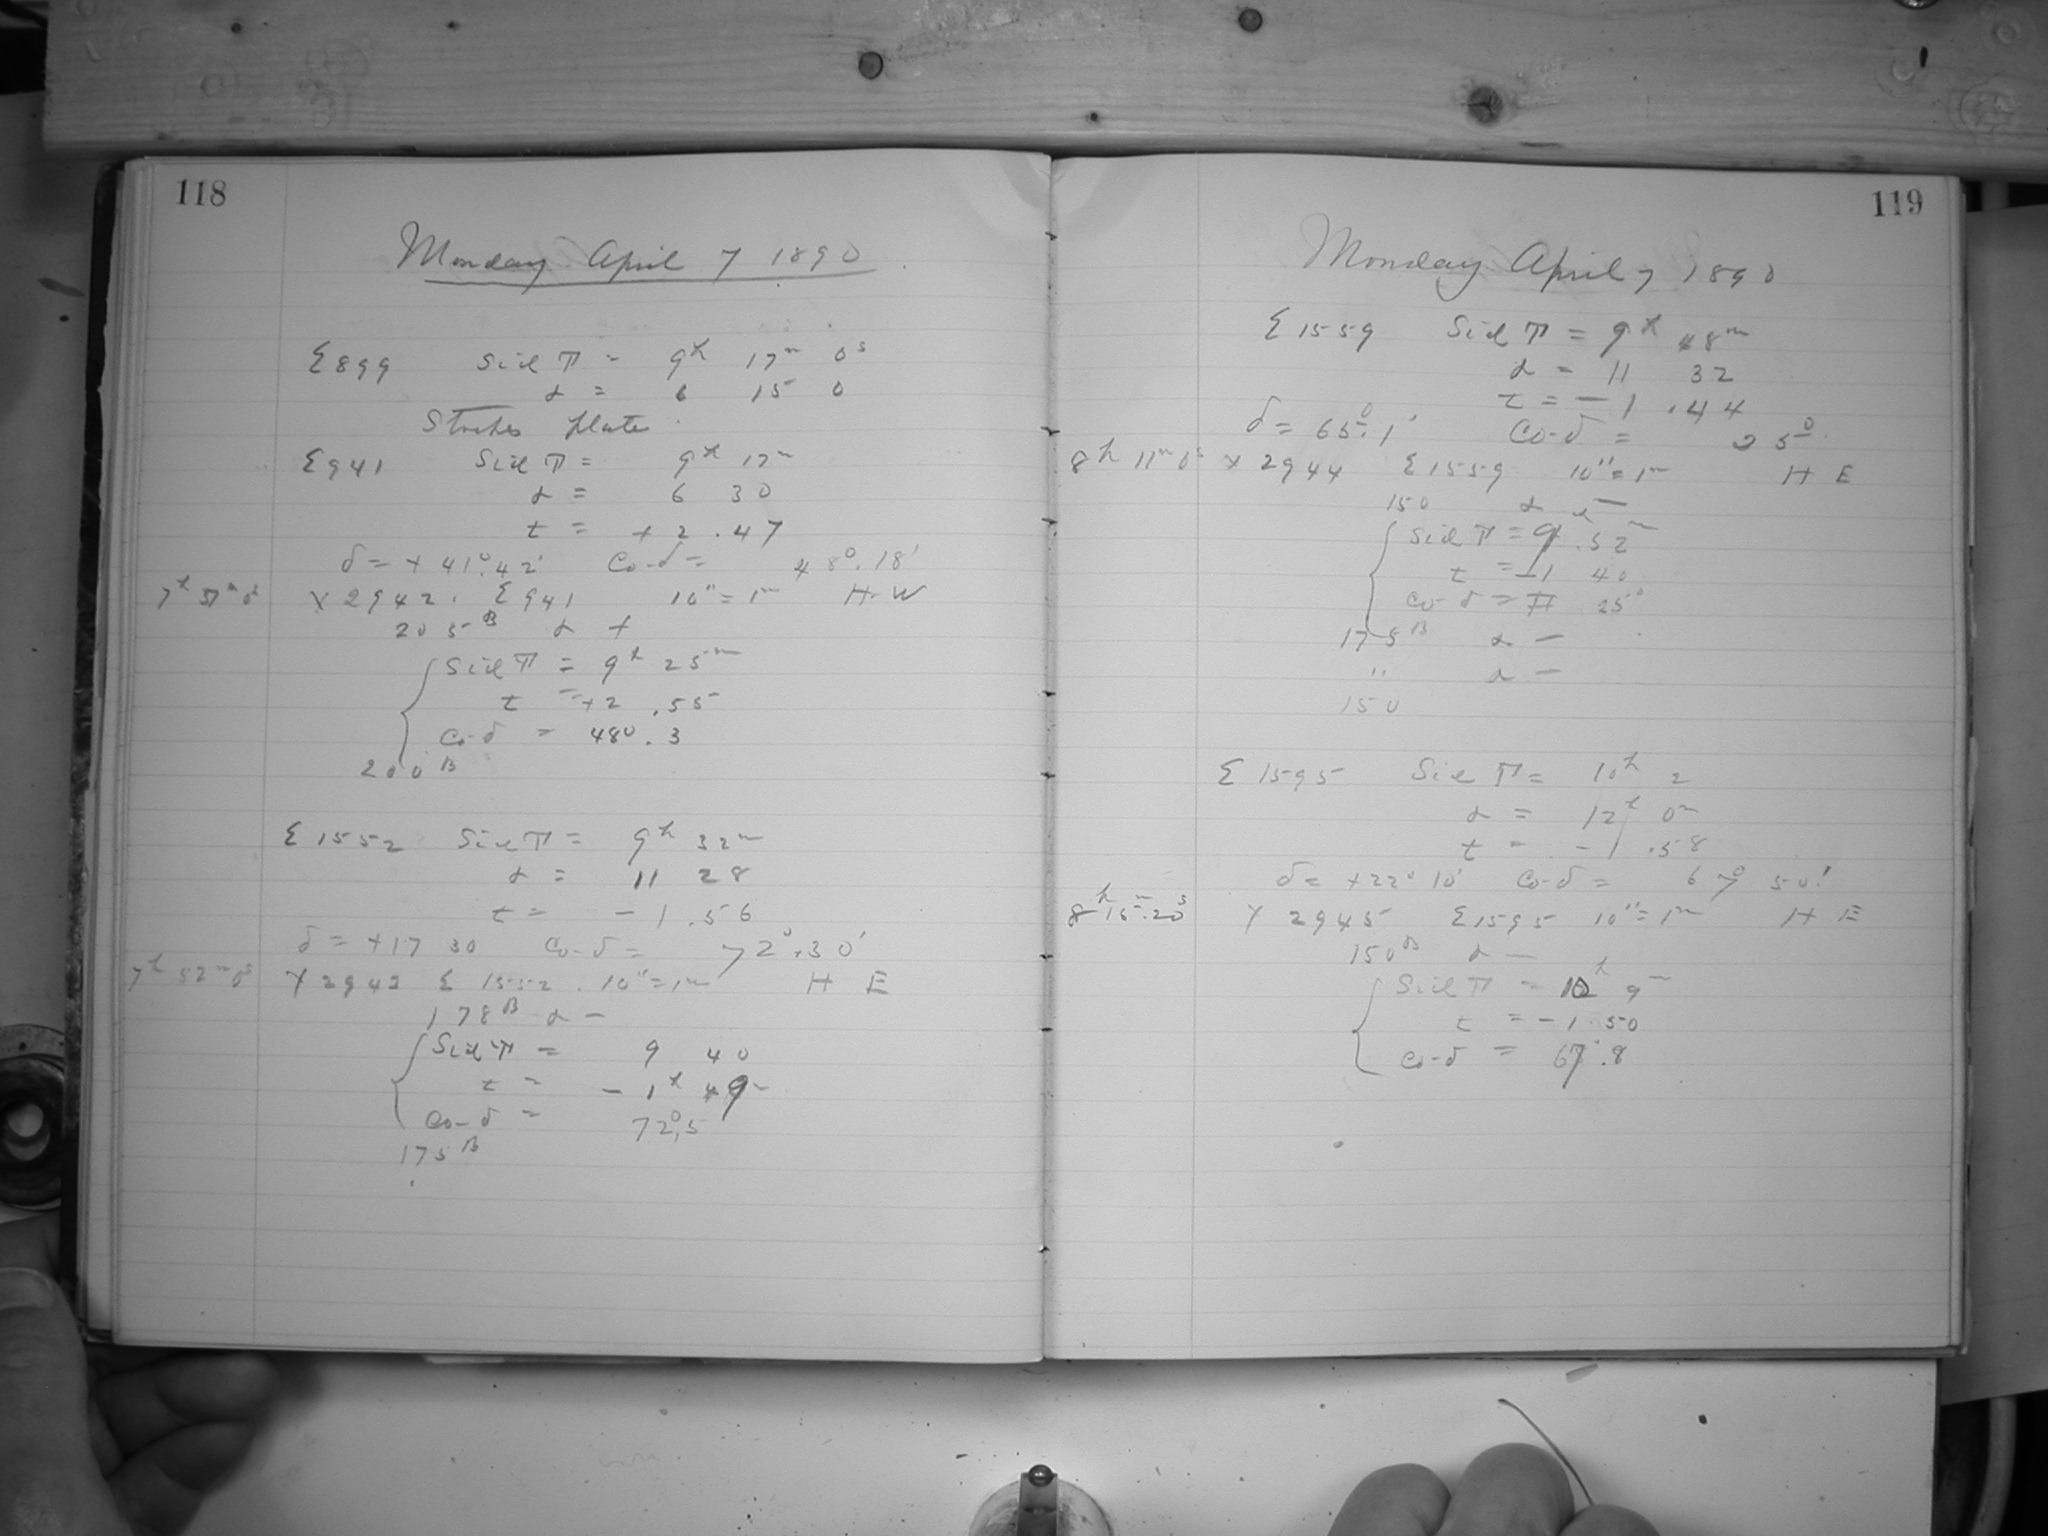 118
Monday April 7 1890
Σ899 Sid T = 9h 17m 0s
α = 6 15 0
Strikes plate.
Σ941 Sid T = 9h 17m
α = 6 30
t = +2.47
δ = +41°.42' Co-δ = 48°.18'
7h 57m 0s X2942. Σ941 10"=1m H W
205B α +
Sid T = 9h 25m
t = +2.55
Co-δ = 480.3
200B
Σ1552 Sid T = 9h 32m
α = 11 28
t = -1.56
δ = +17 30 Co-δ = 72°.30'
7h 52m 0s X2943 Σ1552. 10"=1m H E
178B α -
Sid T = 9 40
t = -1h 49m
Co-δ = 72°.5
175B
119
Monday April 7 1890
Σ1559 Sid T = 9h 48m
α = 11 32
t = -1.44
δ = 65°.1' Co-δ = 25°
8h 11m 0s X2944 Σ1559 10"=1m H E
150 α -
Sid T = 9.52m
t = -1 40
Co-δ = 25°
175B α -
" α -
150
Σ1595 Sid T = 10h 2
α = 12h 0m
t = -1.58
δ = +22° 10' Co-δ = 67° 50'
8h 15m.20s X 2945 Σ1595 10"=1m H E
150B α -
Sid T = 10h 9m
t = -1.50
Co-δ = 67°.8